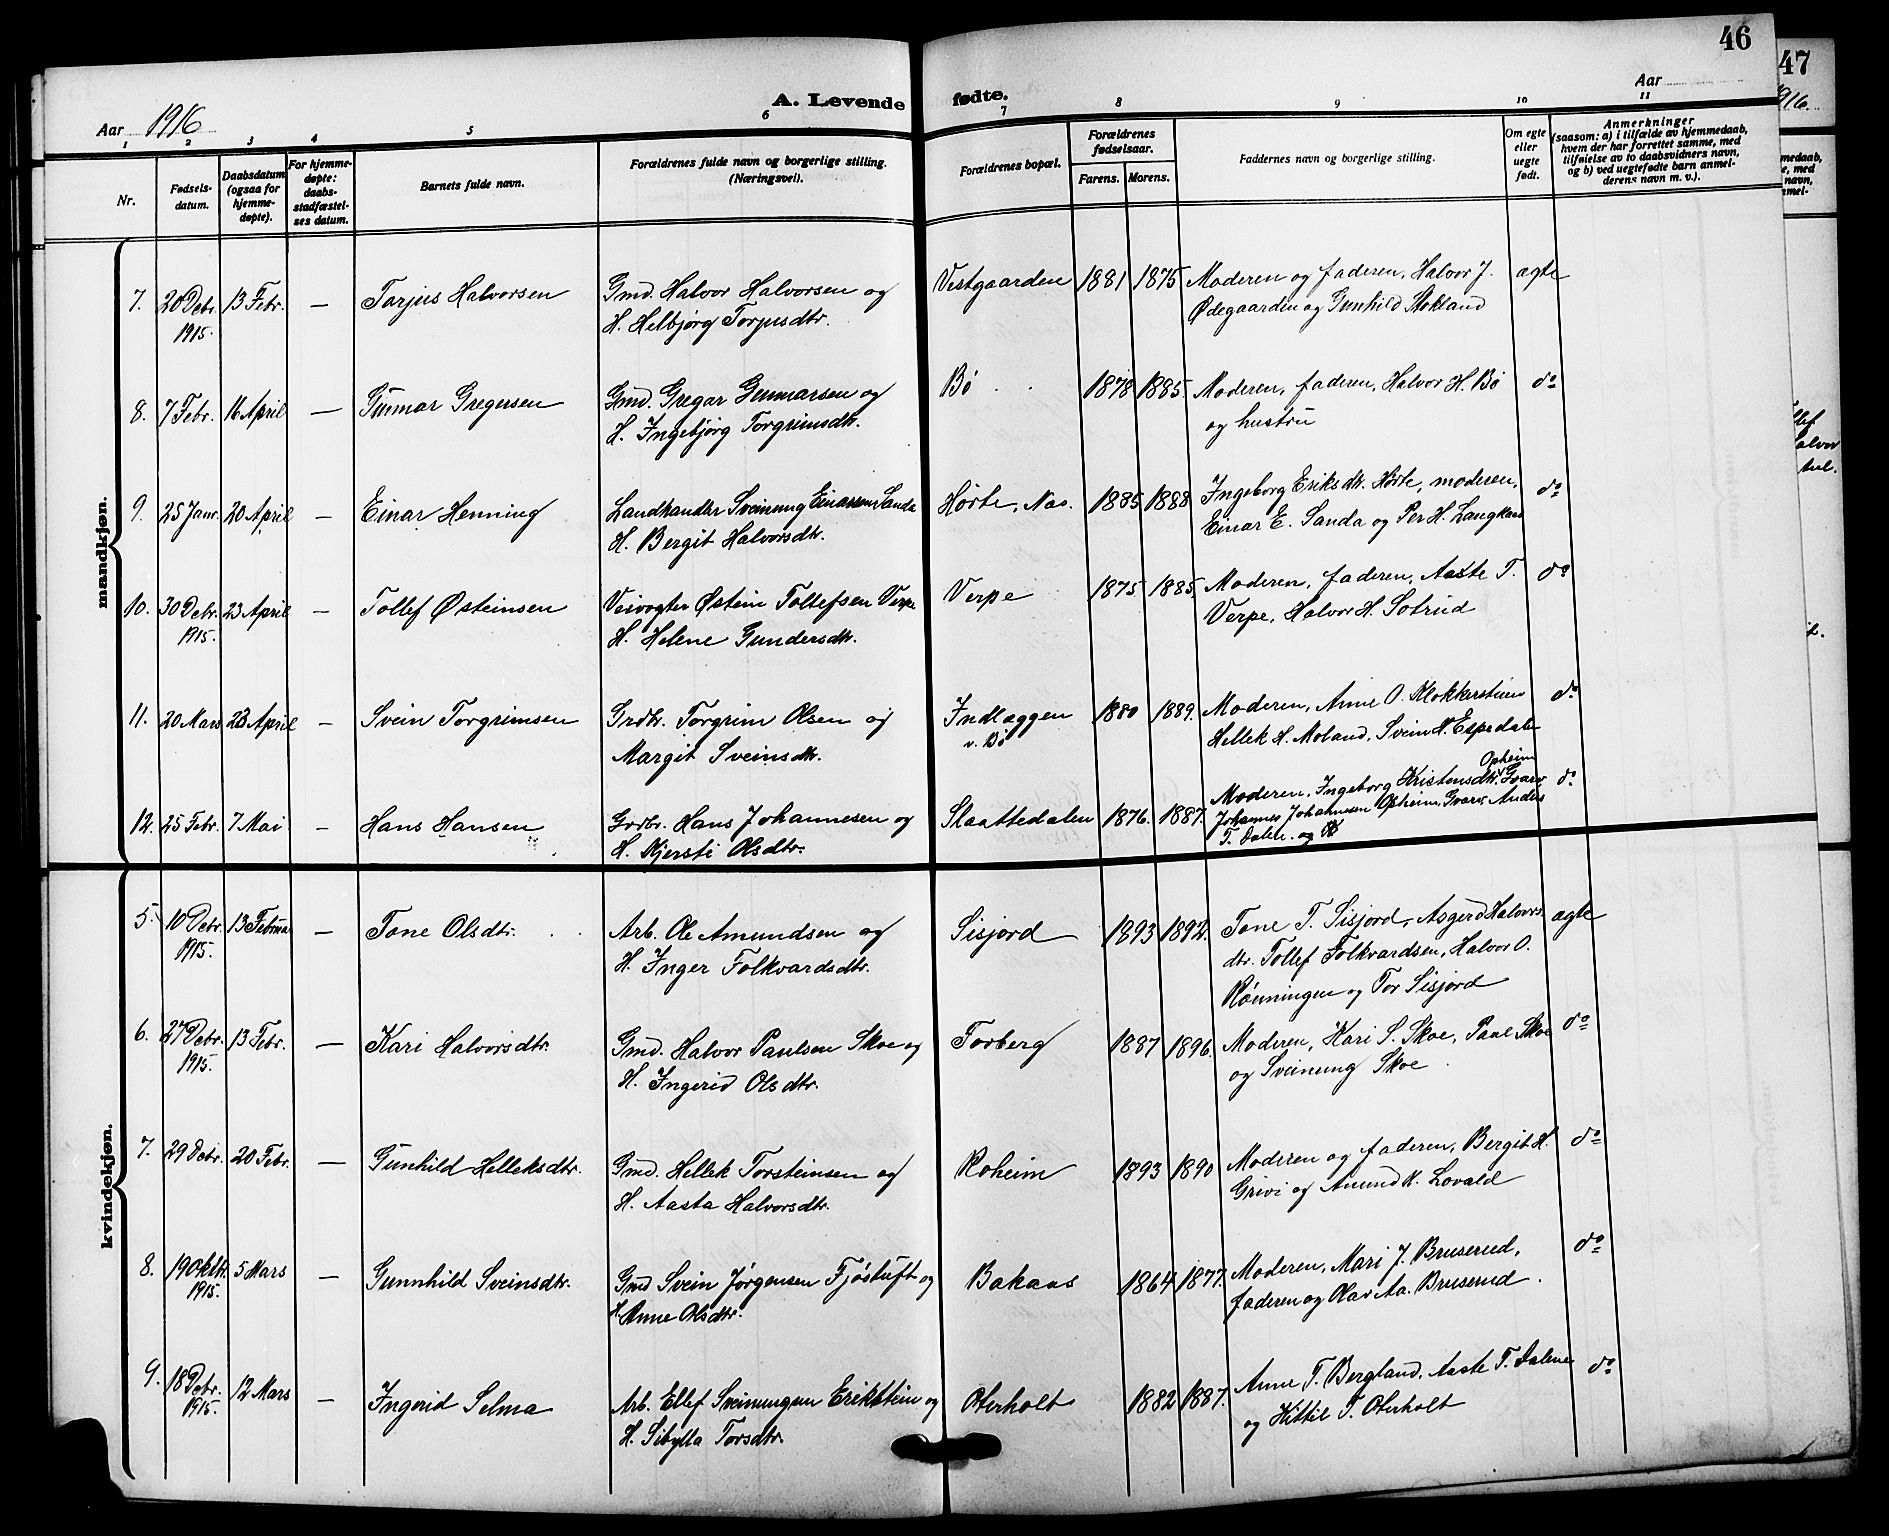 46
47
A. Levende fødte.
Aar 1916
Aar
1916.
1 2 3 4 5 6 7 8 9 10 11
Nr.
Fødsels-
datum.
Daabsdatum
(ogsaa for
hjemme-
døpte).
For hjemme-
døpte:
daabs-
stadfæstel-
ses datum.
Barnets fulde navn.
Forældrenes fulde navn og borgerlige stilling.
(Næringsvei).
Forældrenes bopæl.
Forældrenes
fødselsaar.
Farens. Morens.
Faddernes navn og borgerlige stilling.
Om egte
eller
uegte
født.
Anmerkninger
(saasom: a) i tilfælde av hjemmedaab,
hvem der har forrettet samme, med
tilføielse av to daabsvidners navn,
og b) ved uegtefødte barn anmel-
derens navn m. v.).
mandkjøn.
7. 20 Debr. 13 Febr. — Tarjus Halvorsen Gmd. Halvor Halvorsen og Vestgaarden 1881 1875 Moderen og faderen, Halvor J. ægte
1915. H. Helbjørg Torjusdtr. Ødegaarden og Gunhild Stokland
8. 7 Febr. 16 April — Gunnar Gregersen Gmd. Gregar Gunnarsen og Bö 1878 1885. Moderen, faderen, Halvor H. Bö do
H. Ingebjørg Torgrimsdtr. og hustru
9. 25 Janr. 20 April — Einar Henning Landhandler Sveinung Einarsen Sanda Hörte, Nas. 1885 1888 Ingeborg Eriksdtr. Hörte, moderen, do
H. Bergit Halvorsdtr. Einar E. Sanda og Per H. Langkaas
10. 30 Debr. 23 April — Tollef Østeinsen Veivogter Østein Tollefsen Verpe Verpe 1875 1885. Moderen, faderen, Aaste T. do
1915. H. Helene Gundersdtr. Verpe, Halvor H. Sotrud
11. 20 Mars 23 April — Svein Torgrimsen Grdbr. Torgrim Olsen og Indlæggen 1880 1889. Moderen, Anne O. Klokkersteien do
Margit Sveinsdtr. v. Bö Hellek H. Moland, Svein H. Espedalen
12. 25 Febr. 7 Mai — Hans Hansen Grdbr. Hans Johannesen og Slaattedalen 1876. 1887. Moderen, Ingeborg Kristensdtr. Opheim, Gvarv do
H. Kjersti Olsdtr. Johannes Johannesen Opheim, Gvarv, Anders
T. Dalen. og
kvindekjøn.
5. 10 Debr. 13 Februar — Tone Olsdtr. Arb. Ole Amundsen og Sisjord 1893 1892. Tone T. Sisjord, Asgerd Halvors- ægte
1915. H. Inger Folkvardsdtr. dtr. Tollef Folkvardsen, Halvor O.
Rönningen og Tor Sisjord
6. 27 Debr. 13 Febr. — Kari Halvorsdtr. Gmd. Halvor Paulsen Skoe og Forberg 1887 1896. Moderen, Kari S. Skoe, Paul Skoe do
1915. H. Ingerid Olsdtr. og Sveinung Skoe
7. 29 Debr. 20 Febr. — Gunhild Helleksdtr. Gmd. Hellek Torsteinsen og Roheim 1893 1890 Moderen og faderen, Bergit H. do
H. Aasta Halvorsdtr. Grivi og Amund K. Lovald
8. 19 Oktbr. 5 Mars — Gunnhild Sveinsdtr. Gmd. Svein Jørgensen Fjöstuft og Bakaas 1864 1877. Moderen, Mari J. Bruserud, do
1915. H. Anne Olsdtr. faderen og Olav Aa. Bruserud.
9. 18 Debr. 12 Mars — Ingerid Selma Arb. Ellef Sveinungsen Erikstein og Oterholt 1882 1887. Anne T. Bergland, Aaste T. Dalene do
1915. H. Sibylla Torsdtr. og Kittil T. Oterholt